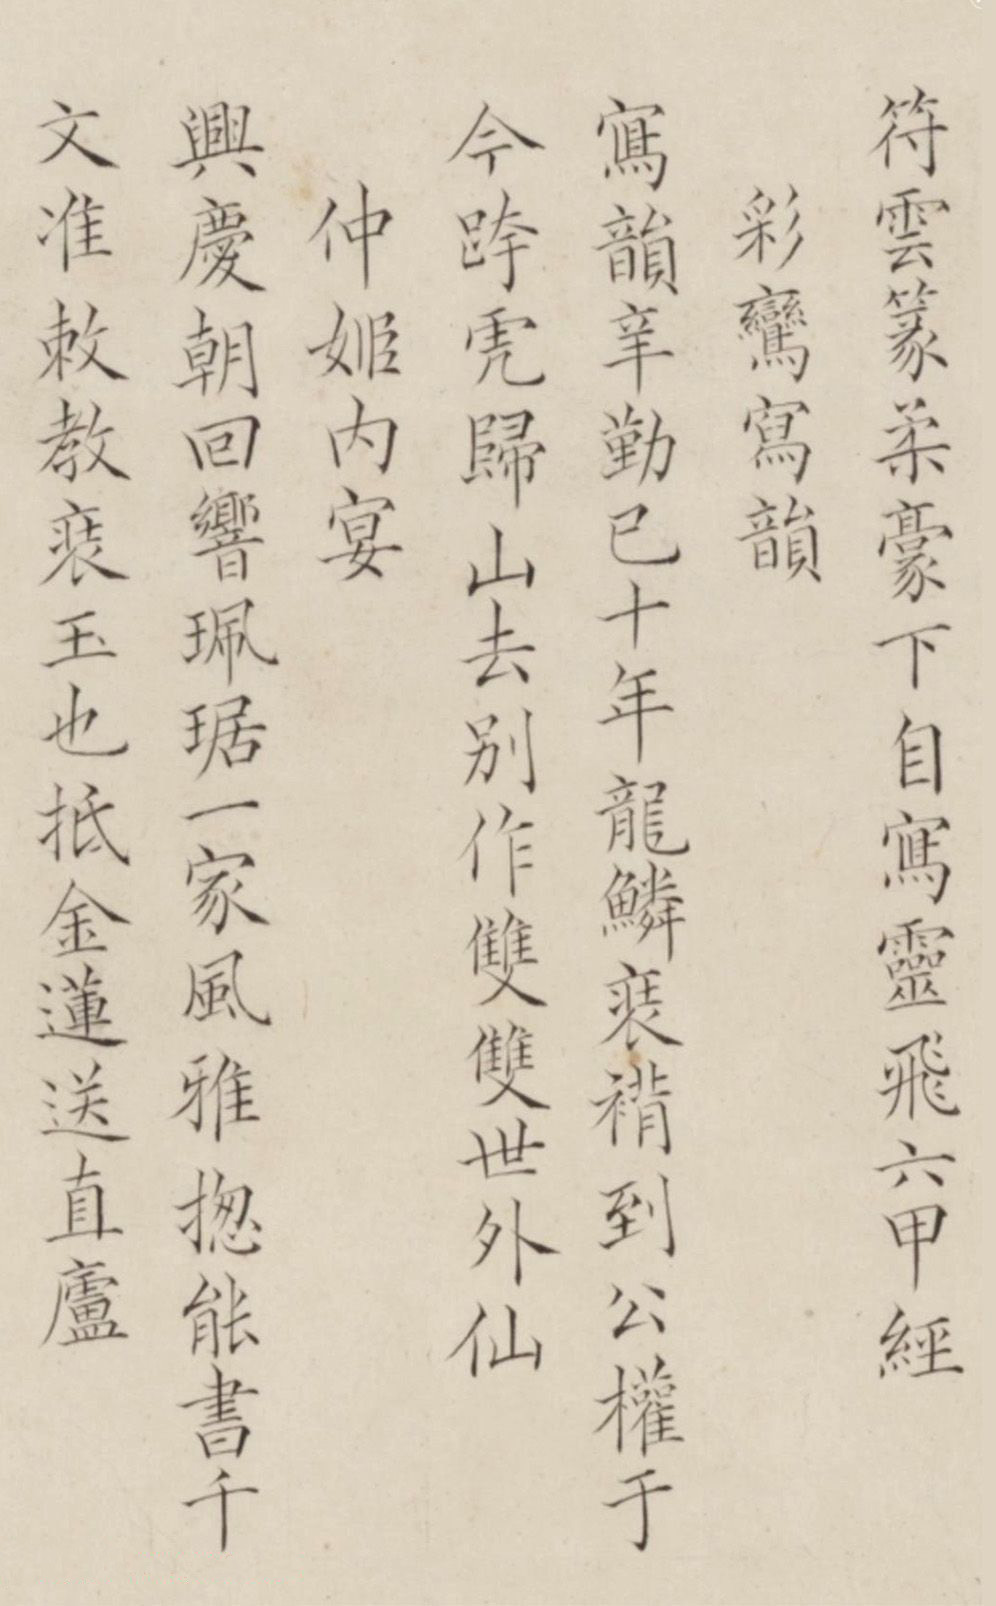 符雲篆柔豪下自寫靈飛六甲經
彩鸞寫韻
寫韻辛勤已十年龍鱗裝褙到公權于
今跨虎歸山去别作雙雙世外仙
仲姬内宴
興慶朝回響珮琚一家風雅揔能書千
文准敕教裝玉也抵金蓮送直廬